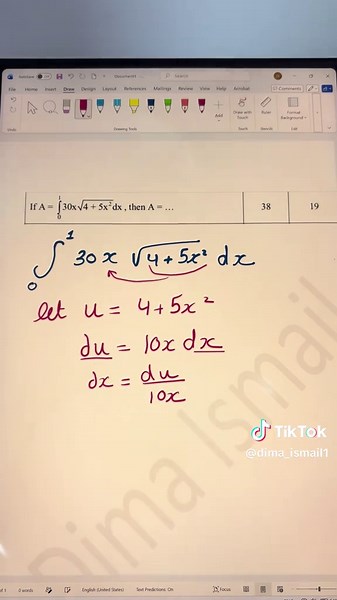 File Home Insert Draw Design Layout References Mailings Review View Help Acrobat
Comments
Add
Draw with Touch
Ruler
Format Background
Undo
Drawing Tools
If A = ∫₀¹ 30x√4 + 5x² dx , then A = … 38 19
∫₀¹ 30x √4+5x² dx
let u = 4+5x²
du = 10x dx
dx = du/10x
TikTok
@dima_ismail1
Dima Ismail
English (United States) Text Predictions: On Focus